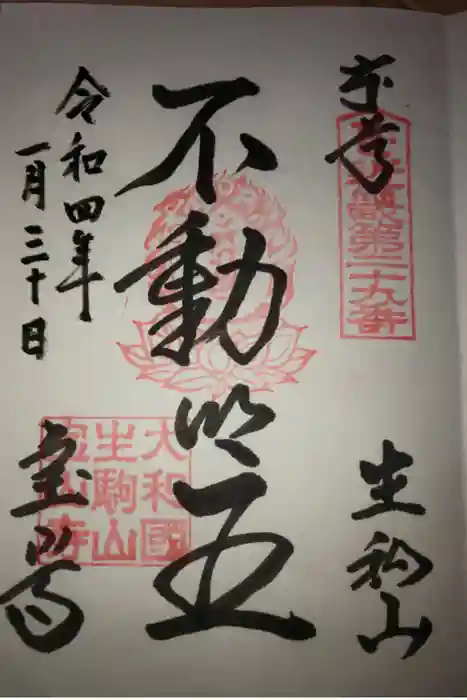 奉拝
第二十九番
生駒山
不動明王
大和國
生駒山
寳山寺
令和四年
一月三十日
寳山寺